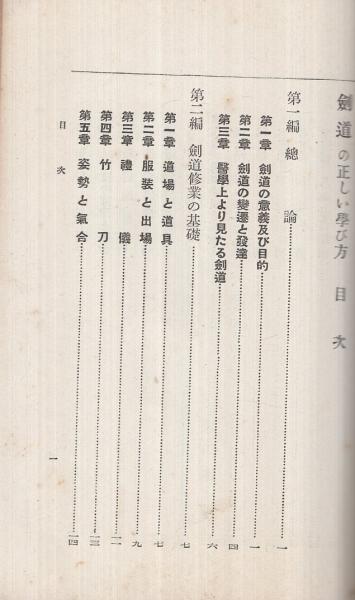 劍道の正しい學び方 目次
第一編 總論…………一
第一章 劍道の意義及び目的…………一
第二章 劍道の變遷と發達…………四
第三章 醫學上より見たる劍道…………六
第二編 劍道修業の基礎…………七
第一章 道場と道具…………七
第二章 服裝と出場…………九
第三章 禮儀…………一二
第四章 竹刀…………一三
第五章 姿勢と氣合…………一四
目次
一